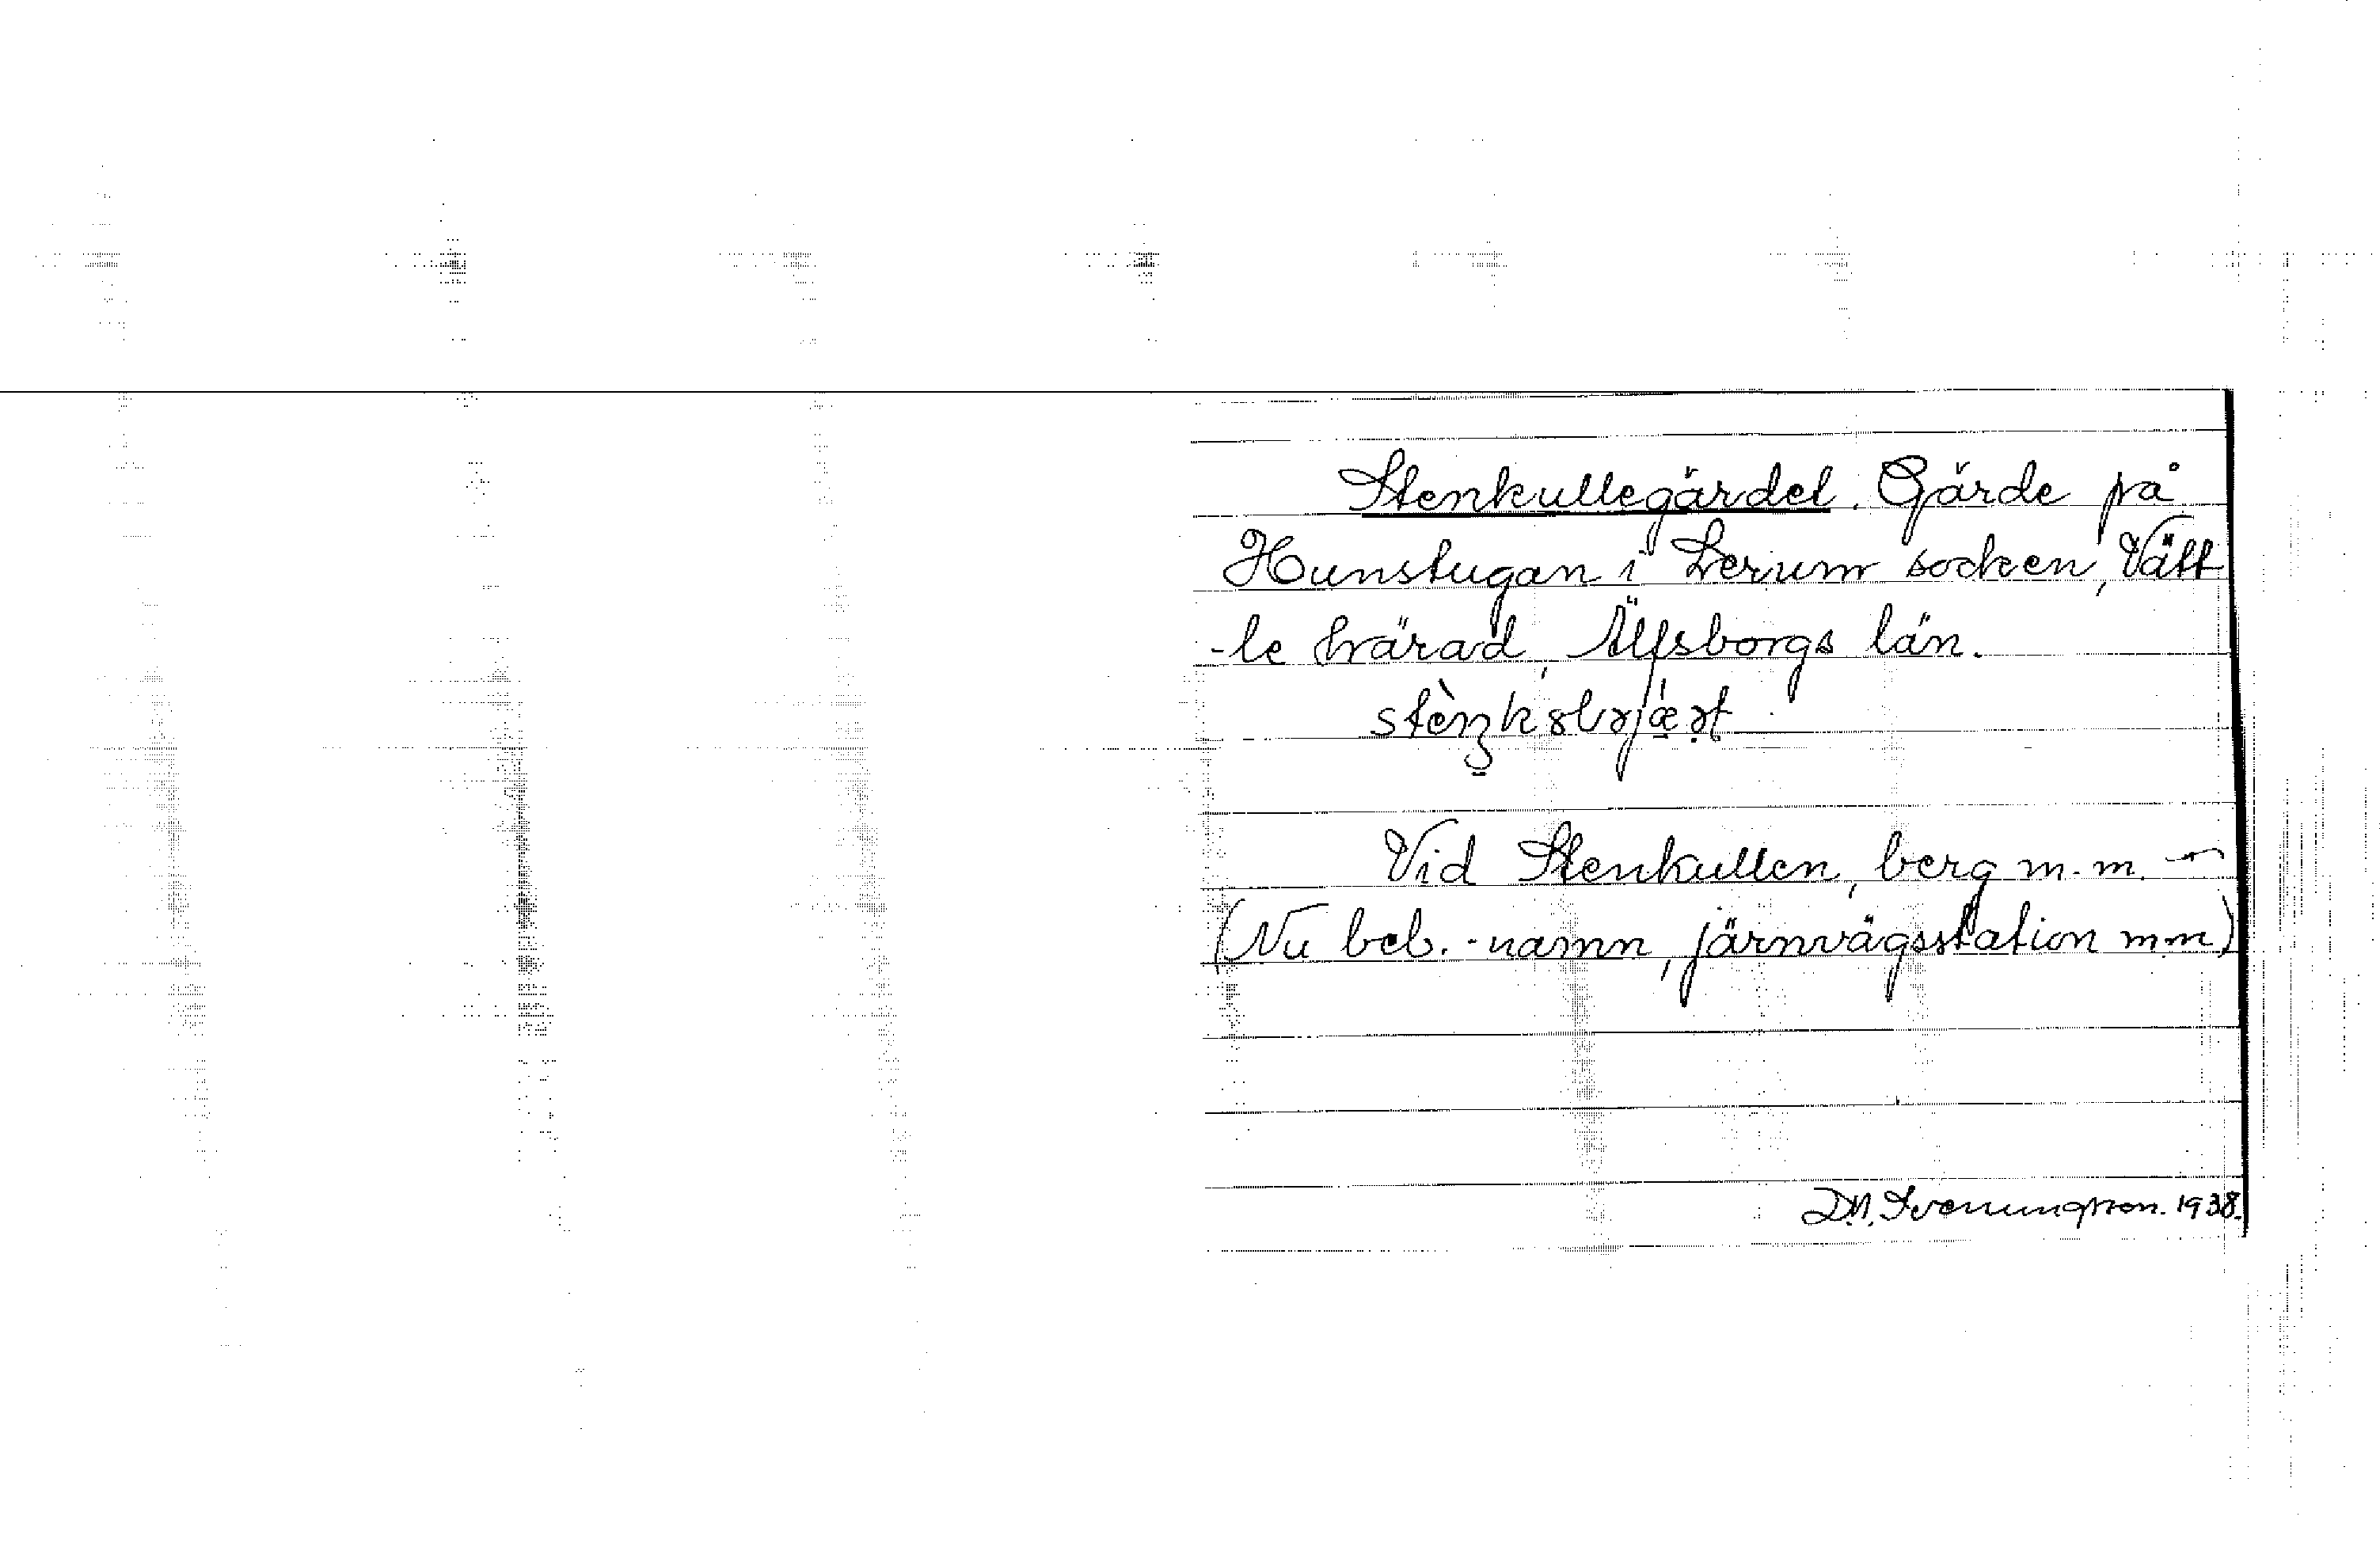 Stenkullegärdet. Gärde på
Hunstugan i Lerum socken, Vätt
-le härad, Älfsborgs län.
Vid Stenkullen, berg m.m. –
(Nu beb.-namn, järnvägsstation m.m)
D.N. Svenungsson. 1938.